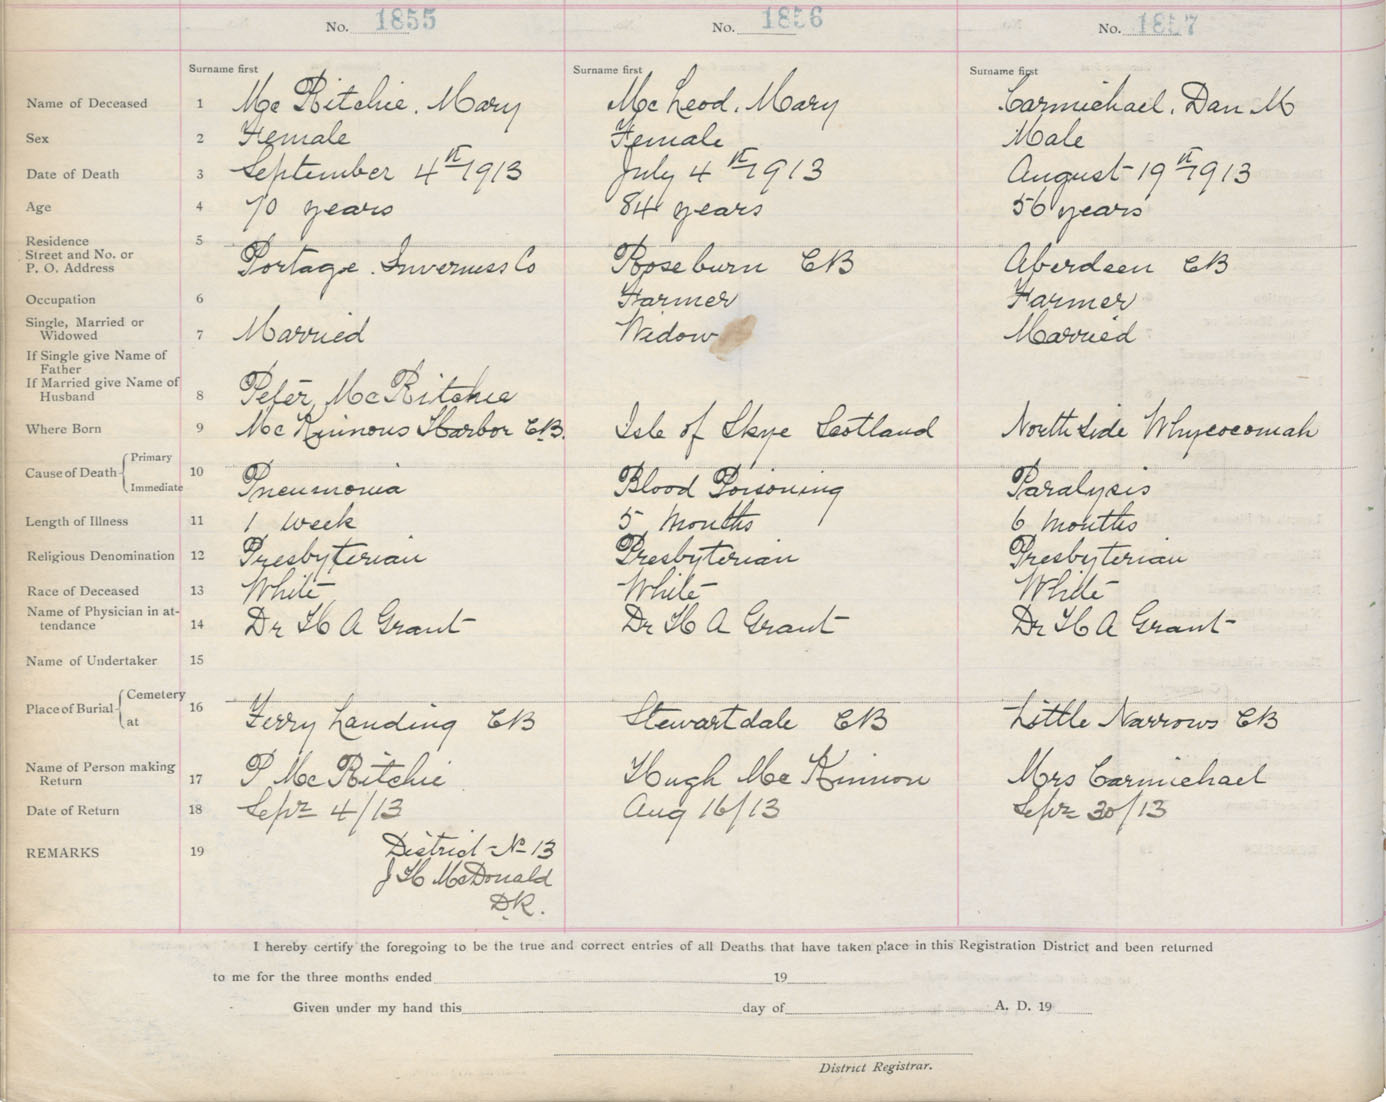 No. 1855 No. 1856 No. 1857
Surname first Surname first Surname first
Name of Deceased 1 McRitchie, Mary McLeod, Mary Carmichael, Dan M
Sex 2 Female Female Male
Date of Death 3 September 4th 1913 July 4th 1913 August 19th 1913
Age 4 70 years 84 years 56 years
Residence 5
Street and No. or
P. O. Address Portage. Inverness Co Roseburn CB Aberdeen CB
Occupation 6 Farmer Farmer
Single, Married or
Widowed 7 Married Widow Married
If Single give Name of
Father
If Married give Name of
Husband 8 Peter McRitchie
Where Born 9 McKinnons Harbor C.B. Isle of Skye Scotland North Side Whycocomah
Cause of Death Primary 10
Immediate Pneumonia Blood Poisoning Paralysis
Length of Illness 11 1 week 5 months 6 months
Religious Denomination 12 Presbyterian Presbyterian Presbyterian
Race of Deceased 13 White White White
Name of Physician in at-
tendance 14 Dr H A Grant Dr H A Grant Dr H A Grant
Name of Undertaker 15
Place of Burial Cemetery 16
at Ferry Landing CB Stewartdale CB Little Narrows CB
Name of Person making
Return 17 P McRitchie Hugh McKinnon Mrs Carmichael
Date of Return 18 Sept 4/13 Aug 16/13 Sept 30/13
REMARKS 19 District No 13
J H McDonald
D.R.
I hereby certify the foregoing to be the true and correct entries of all Deaths that have taken place in this Registration District and been returned
to me for the three months ended 19
Given under my hand this day of A. D. 19
District Registrar.